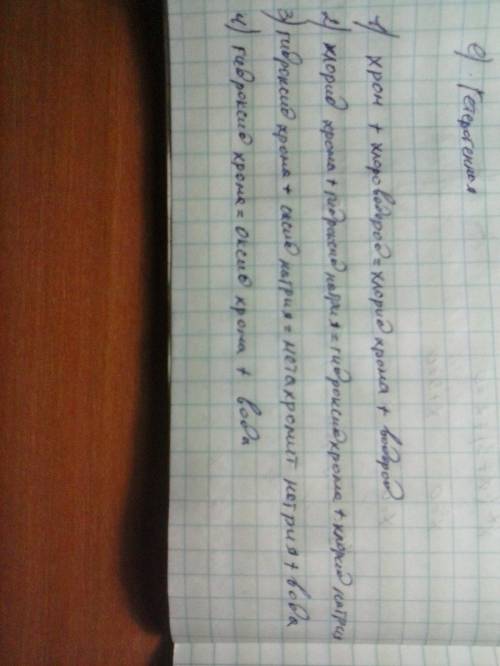 е) Гетерогенная
1) хром + хлороводород = хлорид хрома + водород
2) хлорид хрома + гидроксид натрия = гидроксид хрома + хлорид натрия
3) гидроксид хрома + оксид натрия = метахромит натрия + вода
4) гидроксид хрома = оксид хрома + вода